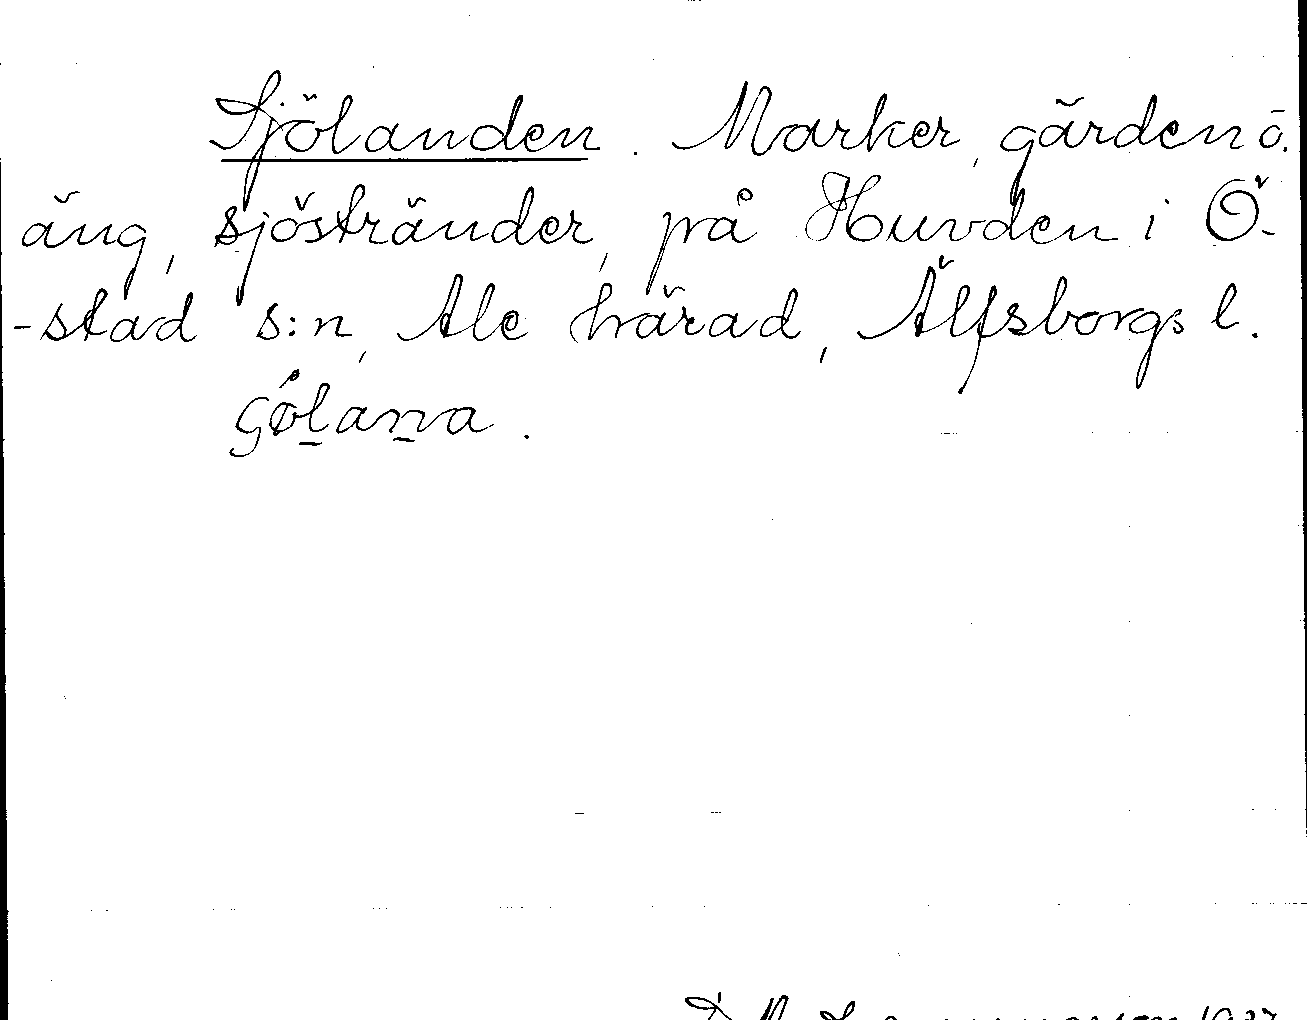 Sjölanden. Marker, gärden o.
äng, sjöstränder, på Huvden i Ö-
-stad s:n, Ale härad, Älfsborgs l.